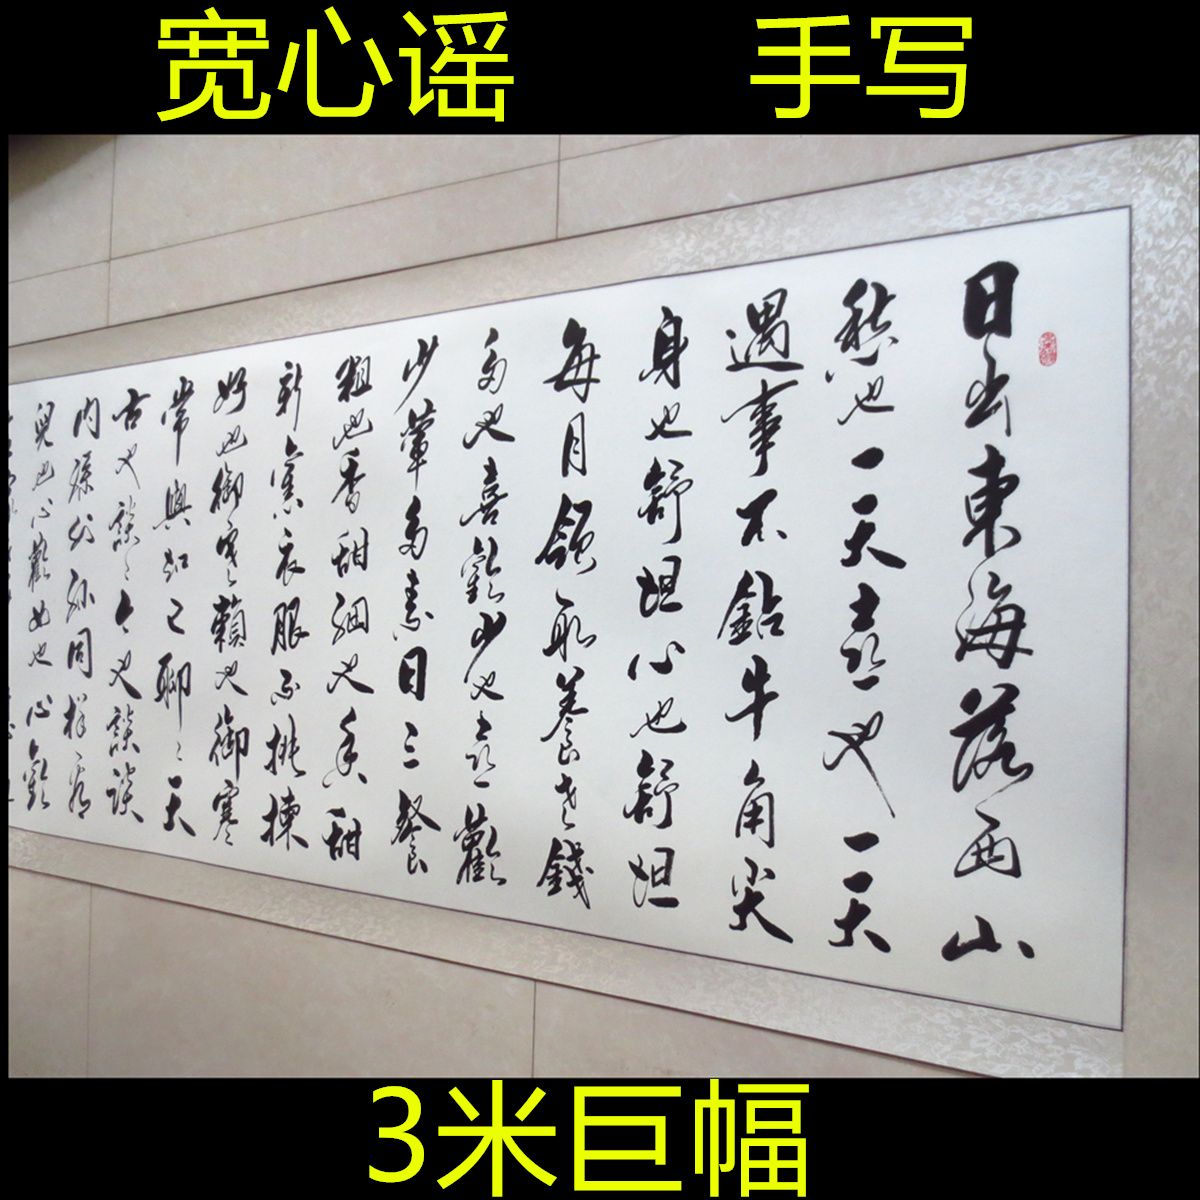 宽心谣 手写
日出東海落西山
愁也一天喜也一天
遇事不鉆牛角尖
身也舒坦心也舒坦
每月領取養老錢
多也喜歡少也喜歡
少葷多素日三餐
粗也香甜細也香甜
新舊衣服不挑揀
好也御寒賴也御寒
常與知己聊聊天
古也談談今也談談
内孫外孫同樣看
兒也心歡女也心歡
3米巨幅